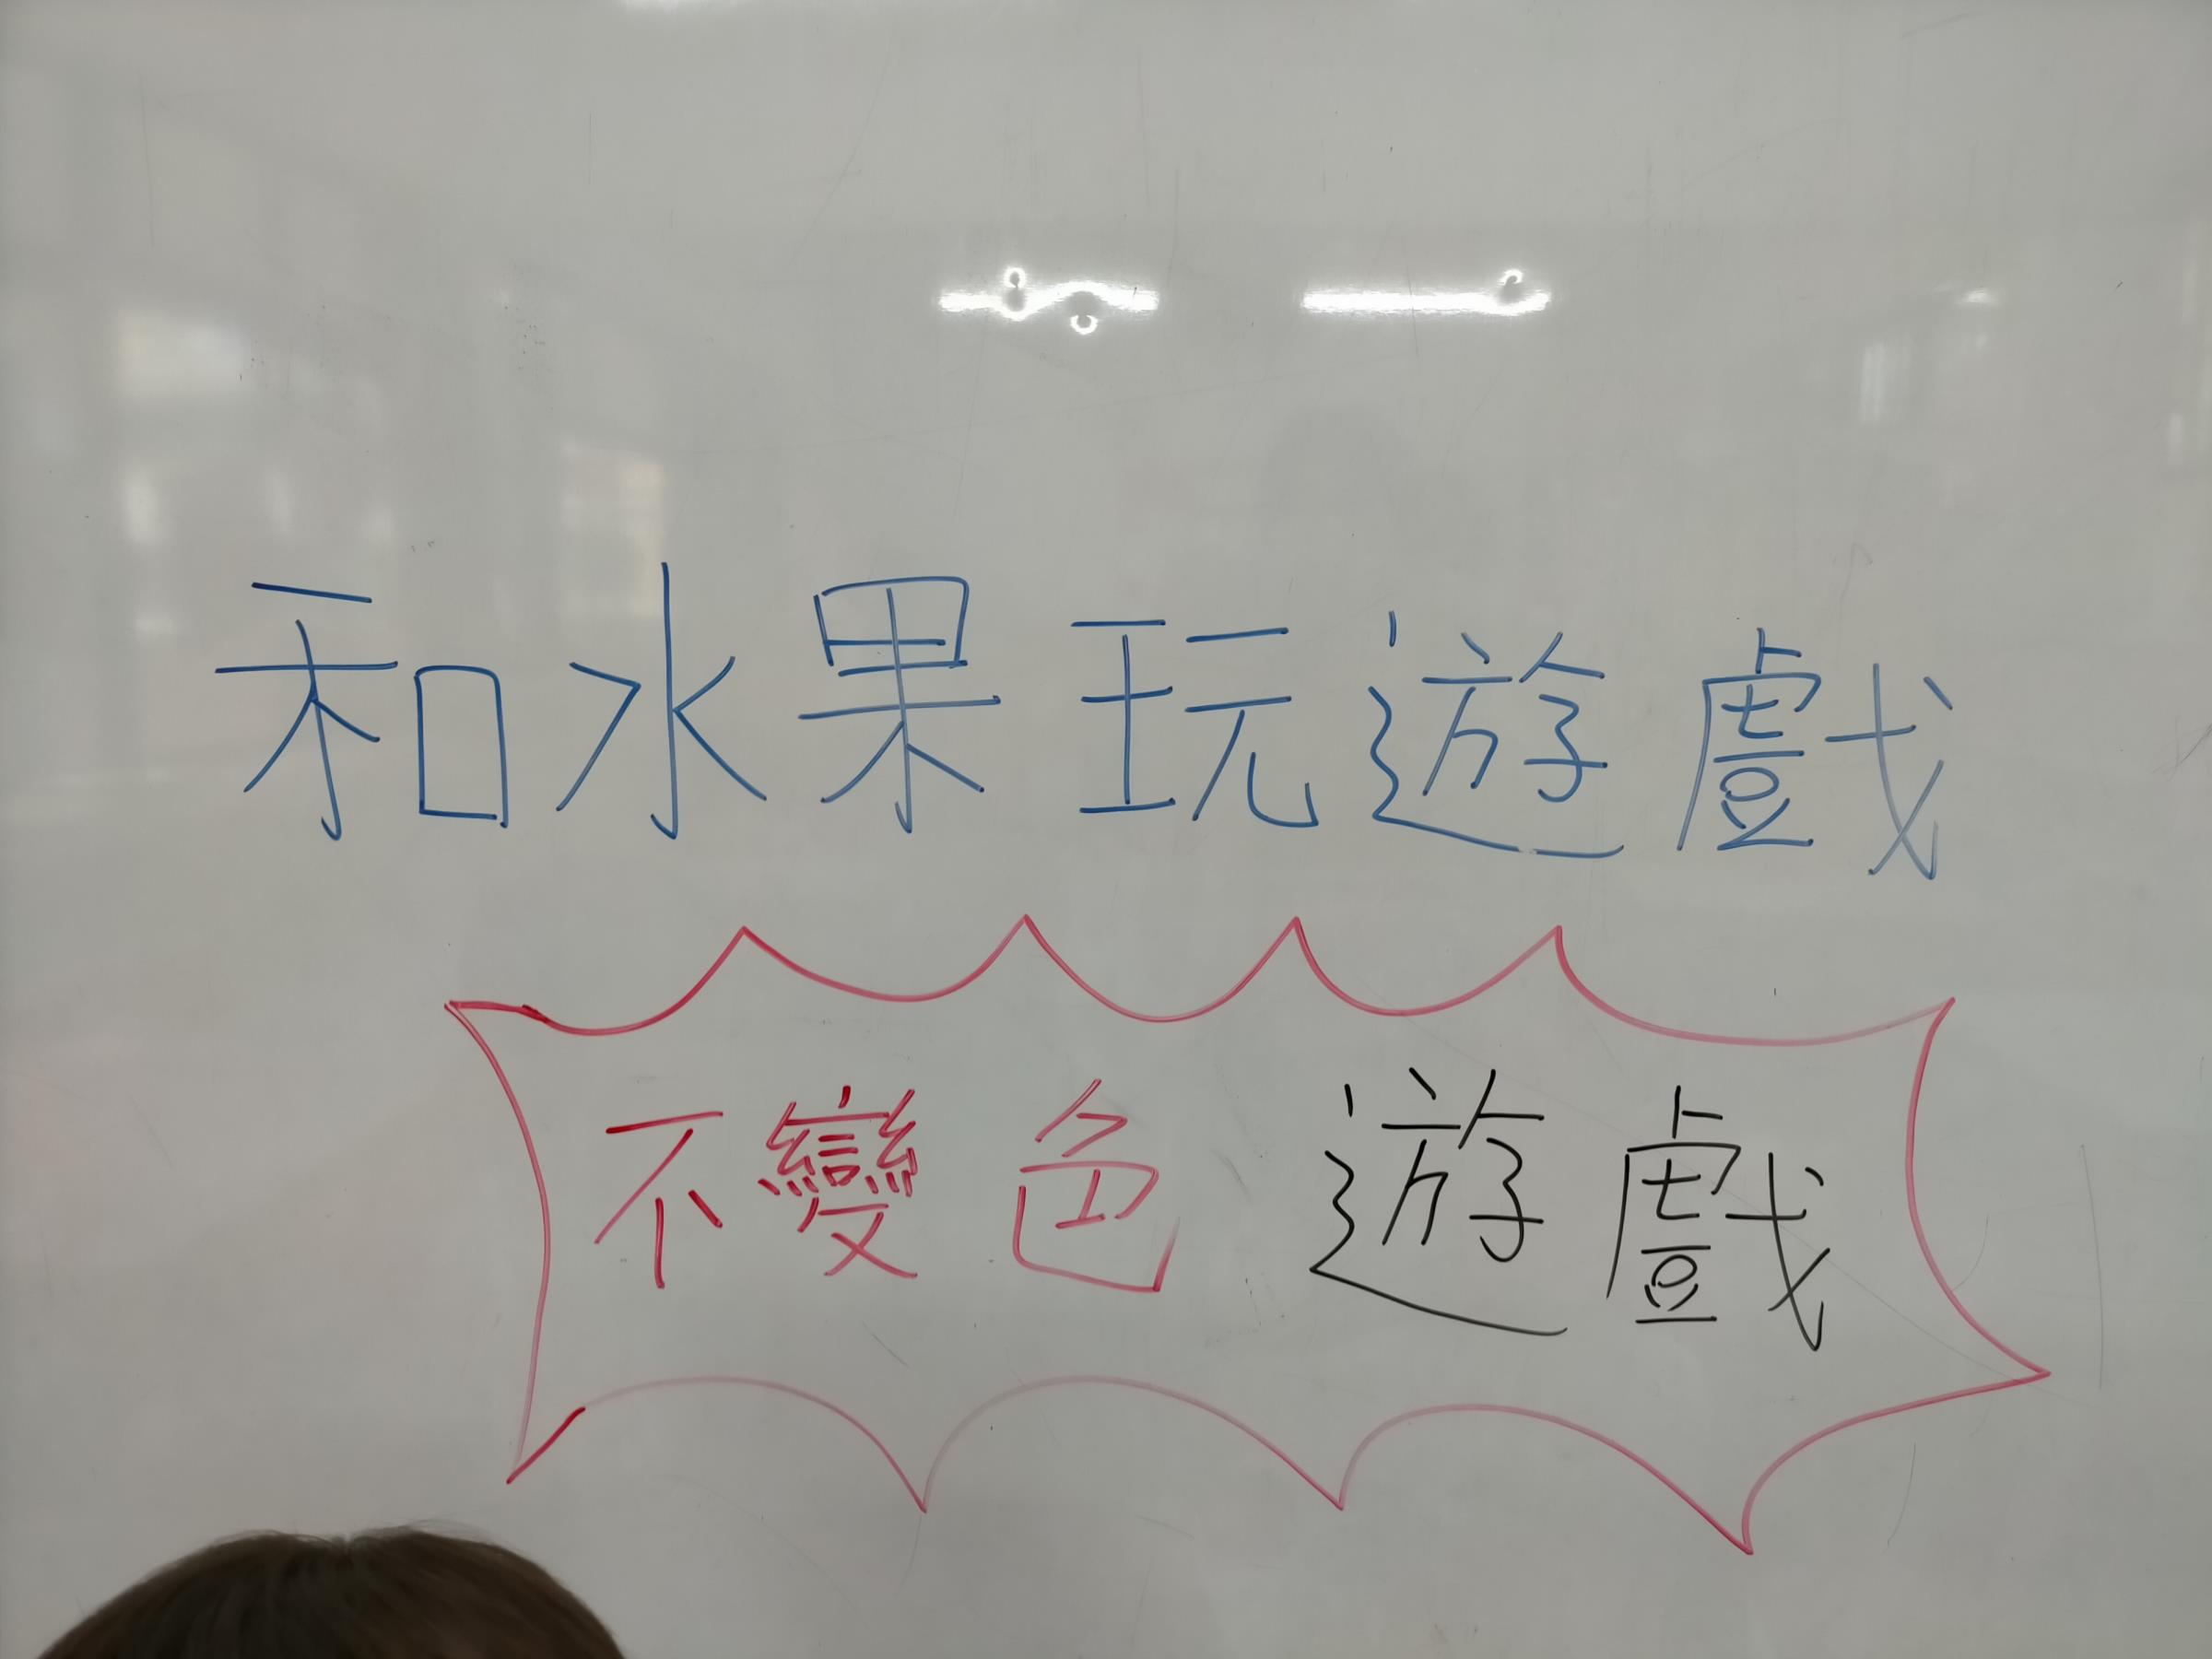 和水果玩遊戲
不變色 遊戲